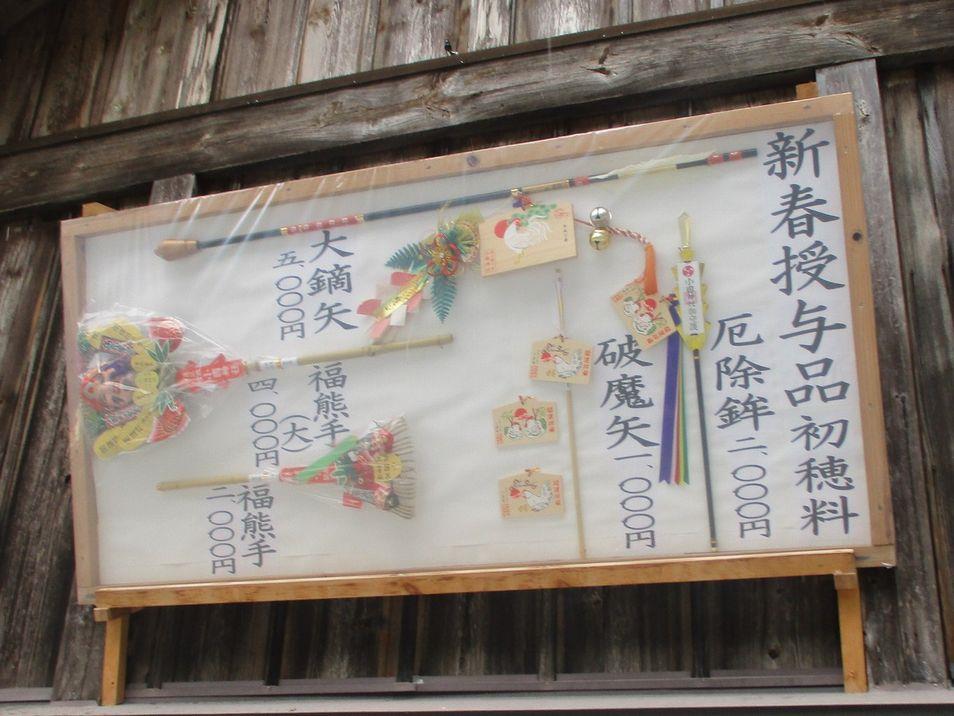 新春授与品初穂料
厄除鉾
二、〇〇〇円
破魔矢
一、〇〇〇円
大鏑矢
五、〇〇〇円
福熊手
(大)
四、〇〇〇円
福熊手
二、〇〇〇円